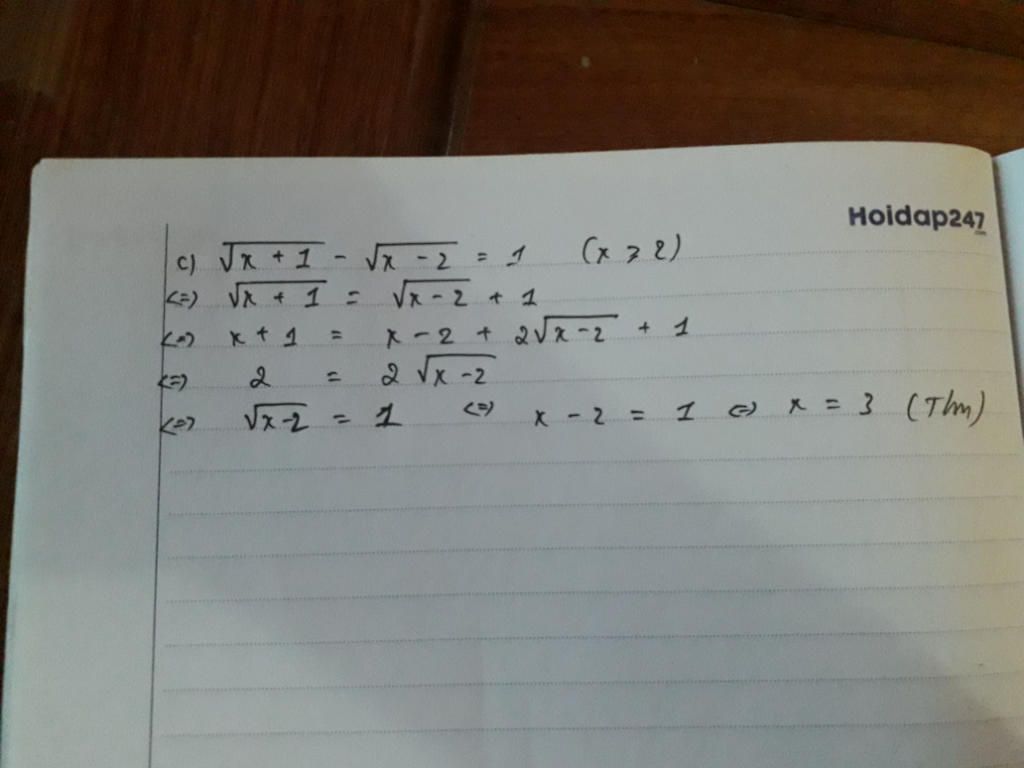 Hoidap247
c) √(x + 1) - √(x - 2) = 1 (x ≥ 2)
<=> √(x + 1) = √(x - 2) + 1
<=> x + 1 = x - 2 + 2√(x - 2) + 1
<=> 2 = 2√(x - 2)
<=> √(x - 2) = 1 <=> x - 2 = 1 <=> x = 3 (Tm)